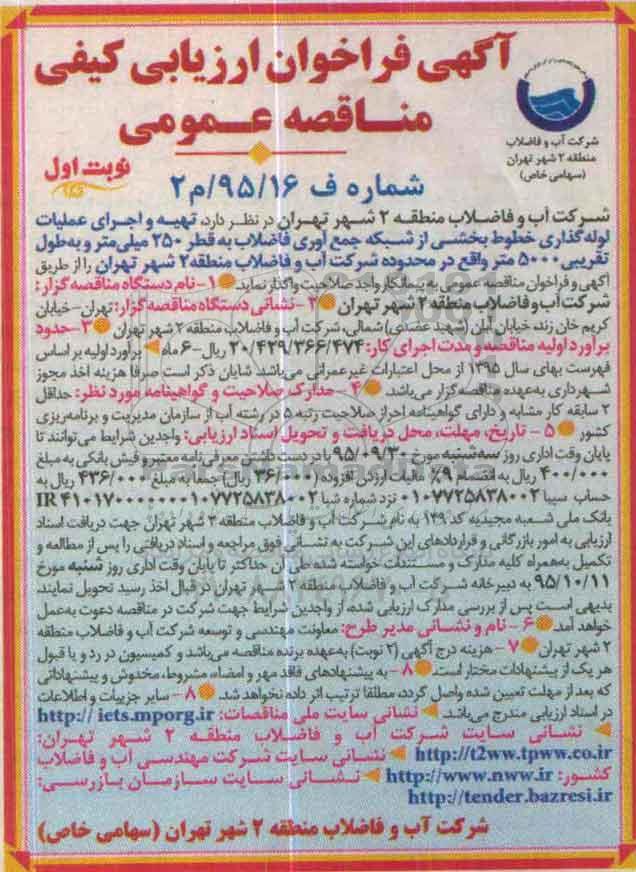 آگهی فراخوان ارزیابی کیفی
مناقصه عمومی
شرکت آب و فاضلاب
منطقه ۲ شهر تهران
(سهامی خاص)
نوبت اول
شماره ف ۹۵/۱۶/م۲
شرکت آب و فاضلاب منطقه ۲ شهر تهران در نظر دارد، تهیه و اجرای عملیات
لوله گذاری خطوط بخشی از شبکه جمع آوری فاضلاب به قطر ۲۵۰ میلی متر و به طول
تقریبی ۵۰۰۰ متر واقع در محدوده شرکت آب و فاضلاب منطقه ۲ شهر تهران را از طریق
آگهی و فراخوان مناقصه عمومی به پیمانکار واجد صلاحیت واگذار نماید. ۱- نام دستگاه مناقصه گزار:
شرکت آب و فاضلاب منطقه ۲ شهر تهران ۲- نشانی دستگاه مناقصه گزار: تهران- خیابان
کریم خان زند، خیابان آبان (شهید عضدی) شمالی، شرکت آب و فاضلاب منطقه ۲ شهر تهران ۳- حدود
برآورد اولیه مناقصه و مدت اجرای کار: ۲۰/۴۲۹/۳۶۶/۴۷۴ ریال- ۶ ماه برآورد اولیه بر اساس
فهرست بهای سال ۱۳۹۵ از محل اعتبارات غیرعمرانی می‌باشد. شایان ذکر است صرفا هزینه اخذ مجوز
شهرداری به‌عهده مناقصه گزار می‌باشد. ۴- مدارک صلاحیت و گواهینامه مورد نظر: حداقل
۲ سابقه کار مشابه و دارای گواهینامه احراز صلاحیت رتبه ۵ در رشته آب از سازمان مدیریت و برنامه‌ریزی
کشور ۵- تاریخ، مهلت، محل دریافت و تحویل اسناد ارزیابی: واجدین شرایط می‌توانند تا
پایان وقت اداری روز سه‌شنبه مورخ ۹۵/۰۹/۳۰ با در دست داشتن معرفی نامه معتبر و فیش بانکی به مبلغ
۴۰۰/۰۰۰ ریال به انضمام ۹٪ مالیات ارزش افزوده (۳۶/۰۰۰ ریال) جمعا به مبلغ ۴۳۶/۰۰۰ ریال به
حساب سیبا ۰۱۰۷۷۲۵۸۳۸۰۰۲ نزد شماره شبا IR ۴۱۰۱۷۰۰۰۰۰۰۰۱۰۷۷۲۵۸۳۸۰۰۲
بانک ملی شعبه مجیدیه کد ۱۴۹ به نام شرکت آب و فاضلاب منطقه ۲ شهر تهران جهت دریافت اسناد
ارزیابی به امور بازرگانی و قراردادهای این شرکت به نشانی فوق مراجعه و اسناد دریافتی را پس از مطالعه و
تکمیل به‌همراه کلیه مدارک و مستندات خواسته شده طی آن حداکثر تا پایان وقت اداری روز شنبه مورخ
۹۵/۱۰/۱۱ به دبیرخانه شرکت آب و فاضلاب منطقه ۲ شهر تهران در قبال اخذ رسید تحویل نمایند.
بدیهی است پس از بررسی مدارک ارزیابی شده، از واجدین شرایط جهت شرکت در مناقصه دعوت به‌عمل
خواهد آمد. ۶- نام و نشانی مدیر طرح: معاونت مهندسی و توسعه شرکت آب و فاضلاب منطقه
۲ شهر تهران ۷- هزینه درج آگهی (۲ نوبت) به‌عهده برنده مناقصه می‌باشد و کمیسیون در رد و یا قبول
هر یک از پیشنهادات مختار است. ۸- به پیشنهادهای فاقد مهر و امضاء، مشروط، مخدوش و پیشنهاداتی
که بعد از مهلت تعیین شده واصل گردد، مطلقا ترتیب اثر داده نخواهد شد. ۸- سایر جزییات و اطلاعات
در اسناد ارزیابی مندرج می‌باشد. نشانی سایت ملی مناقصات: http:// iets.mporg.ir
نشانی سایت شرکت آب و فاضلاب منطقه ۲ شهر تهران:
http://t2ww.tpww.co.ir نشانی سایت شرکت مهندسی آب و فاضلاب
کشور: http://www.nww.ir نشانی سایت سازمان بازرسی:
http://tender.bazresi.ir
شرکت آب و فاضلاب منطقه ۲ شهر تهران (سهامی خاص)